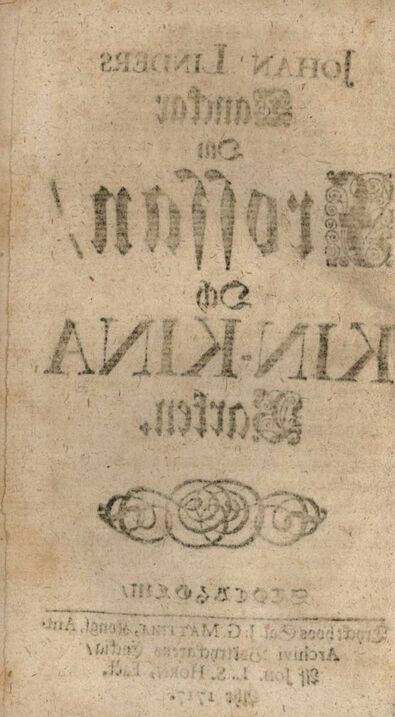 JOHAN LINDERS
Tankar
Om
Frossan/
Och
KIN-KINA
Barken.
STOCKHOLM/
Tryckt hoos Sal. J. G. MATTHIÆ, Kongl. Ant.
Archivi Boktryckarens Enckia/
Af Joh. L. S. HORN, Fact.
Åhr 1717.